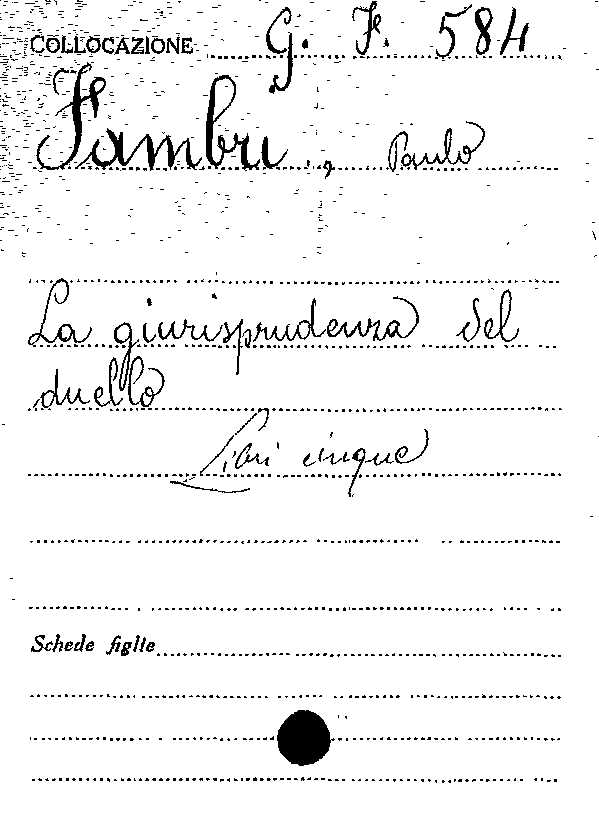 COLLOCAZIONE G. F. 584
Fambri, Paulo
La giurisprudenza del
duello
Libri cinque
Schede figlie